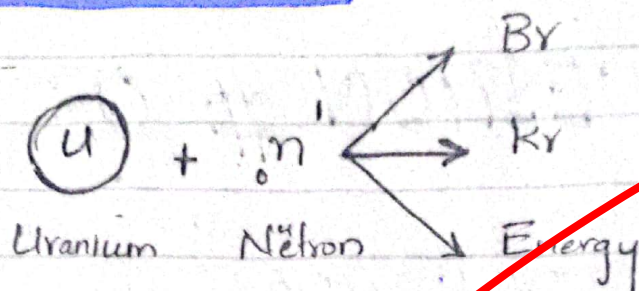 Br
U + ₀n¹ Kr
Uranium Nëtron Energy